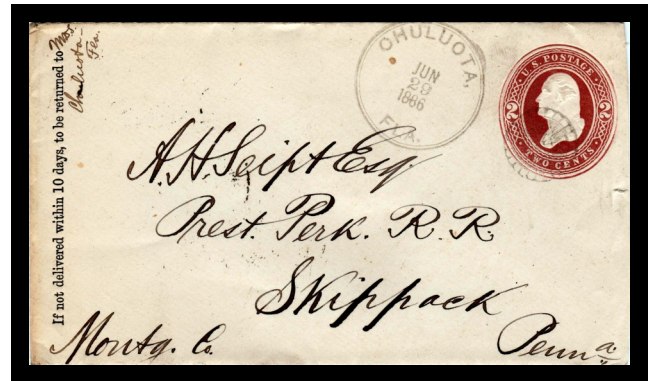 If not delivered within 10 days, to be returned to
Chuluota
Fla.
CHULUOTA,
JUN
29
1886
FLA.
U.S. POSTAGE
2 2
TWO CENTS
A. H. Seipt Esq.
Prest. Perk. R. R.
Skippack
Montg. Co.
Penna.